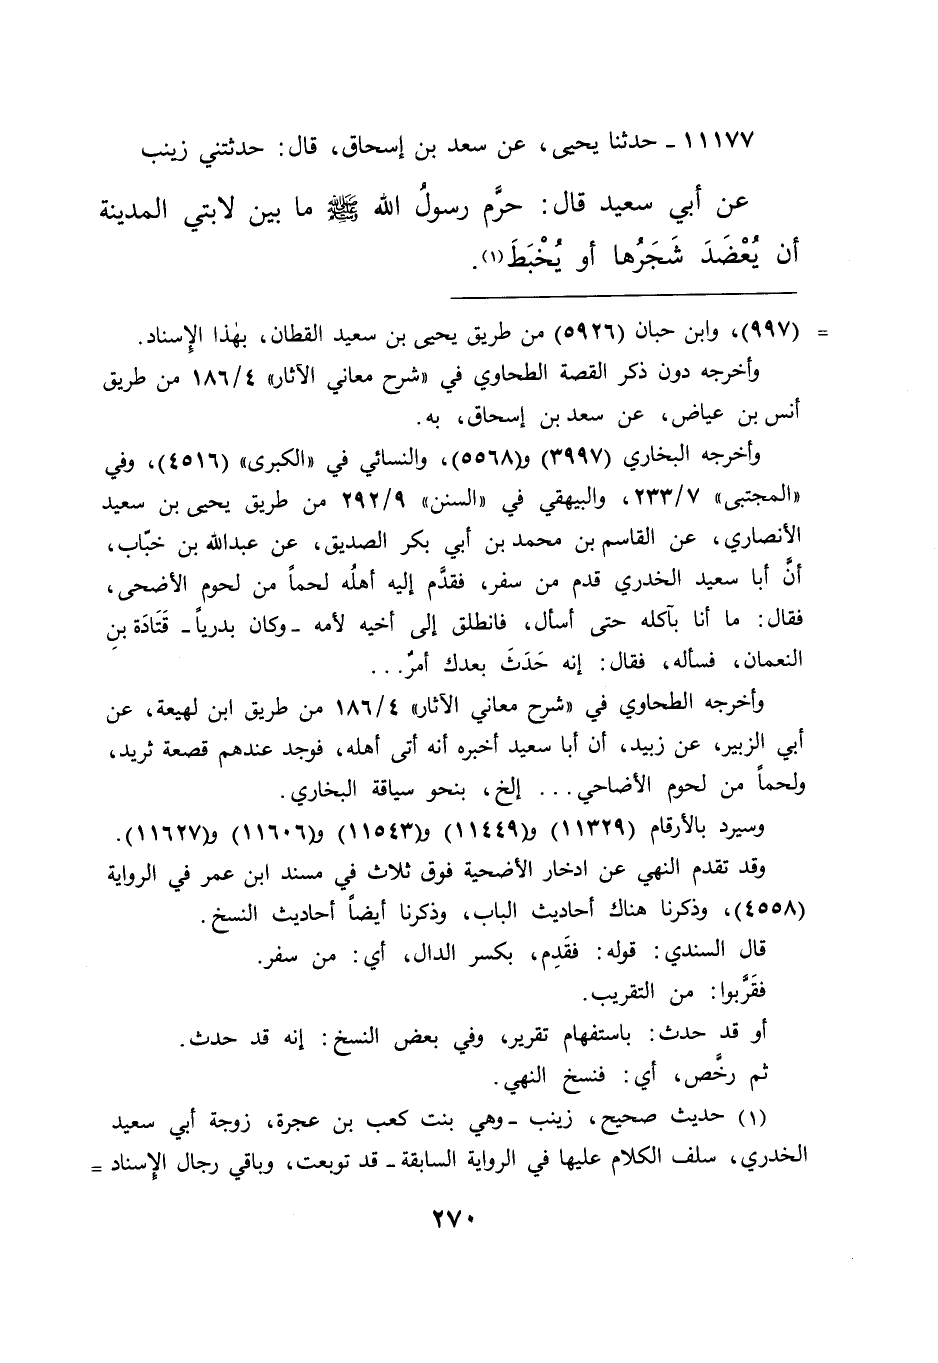 ١١١٧٧ ـ حدثنا يحيى، عن سعد بن إسحاق، قال: حدثتني زينب
عن أبي سعيد قال: حرَّم رسولُ الله ﷺ ما بين لابتي المدينة
أن يُعْضَدَ شَجَرُها أو يُخْبَطَ(١).
= (٩٩٧)، وابن حبان (٥٩٢٦) من طريق يحيى بن سعيد القطان، بهٰذا الإِسناد.
وأخرجه دون ذكر القصة الطحاوي في «شرح معاني الآثار» ١٨٦/٤ من طريق
أنس بن عياض، عن سعد بن إسحاق، به.
وأخرجه البخاري (٣٩٩٧) و(٥٥٦٨)، والنسائي في «الكبرى» (٤٥١٦)، وفي
«المجتبى» ٢٣٣/٧، والبيهقي في «السنن» ٢٩٢/٩ من طريق يحيى بن سعيد
الأنصاري، عن القاسم بن محمد بن أبي بكر الصديق، عن عبدالله بن خبّاب،
أنَّ أبا سعيد الخدري قدم من سفر، فقدَّم إليه أهلُه لحماً من لحوم الأضحى،
فقال: ما أنا بآكله حتى أسأل، فانطلق إلى أخيه لأمه ـ وكان بدرياً ـ قَتَادَة بنِ
النعمان، فسأله، فقال: إنه حَدَثَ بعدك أمرٌ...
وأخرجه الطحاوي في «شرح معاني الآثار» ١٨٦/٤ من طريق ابن لهيعة، عن
أبي الزبير، عن زبيد، أن أبا سعيد أخبره أنه أتى أهله، فوجد عندهم قصعة ثريد،
ولحماً من لحوم الأضاحي... إلخ، بنحو سياقة البخاري.
وسيرد بالأرقام (١١٣٢٩) و(١١٤٤٩) و(١١٥٤٣) و(١١٦٠٦) و(١١٦٢٧).
وقد تقدم النهي عن ادخار الأضحية فوق ثلاث في مسند ابن عمر في الرواية
(٤٥٥٨)، وذكرنا هناك أحاديث الباب، وذكرنا أيضاً أحاديث النسخ.
قال السندي: قوله: فقَدِم، بكسر الدال، أي: من سفر.
فقَرَّبوا: من التقريب.
أو قد حدث: باستفهام تقرير، وفي بعض النسخ: إنه قد حدث.
ثم رخَّص، أي: فنسخ النهي.
(١) حديث صحيح، زينب ـ وهي بنت كعب بن عجرة، زوجة أبي سعيد
الخدري، سلف الكلام عليها في الرواية السابقة ـ قد توبعت، وباقي رجال الإِسناد =
٢٧٠